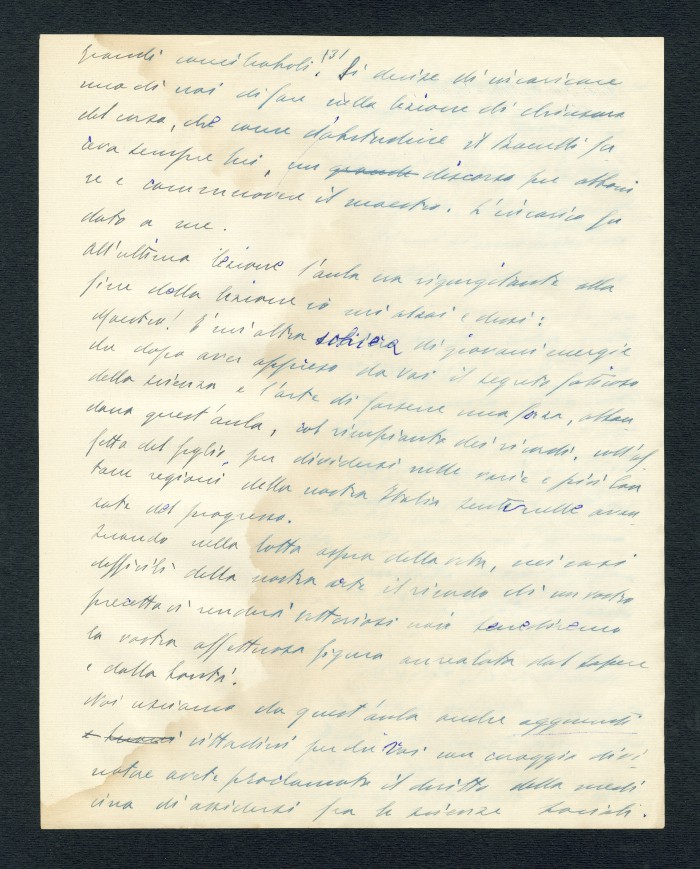 Grandi conciliaboli. (3) Si decise di incaricare
uno di noi di fare nella lezione di chiusura
del corso, che come d'abitudine il Baccelli fa
ceva sempre lui, un grande discorso per
re e commuovere il maestro. L'incarico fu
dato a me.
All'ultima lezione l'aula era rigurgitante alla
fine della lezione io mi alzai e dissi:
Maestro! È un'altra schiera di giovani energie
che dopo aver appreso da voi il segreto faticoso
della scienza e l'arte di farsene una forza, abban
dona quest'aula, col rimpianto dei ricordi, coll'af
fetto del figlio, per dividersi nelle varie e più lon
tane regioni della nostra Italia sentinelle avan
zate del progresso.
Quando nella lotta aspra della vita, nei casi
difficili della nostra arte il ricordo di un vostro
precetto ci renderà vittoriosi noi benediremo
la vostra affettuosa figura aureolata dal sapere
e dalla bontà.
Noi usciamo da quest'aula anche agguerriti
e buoni cittadini perché voi con coraggio divi
natore avete proclamato il diritto della medi
cina di assidersi fra le scienze sociali.